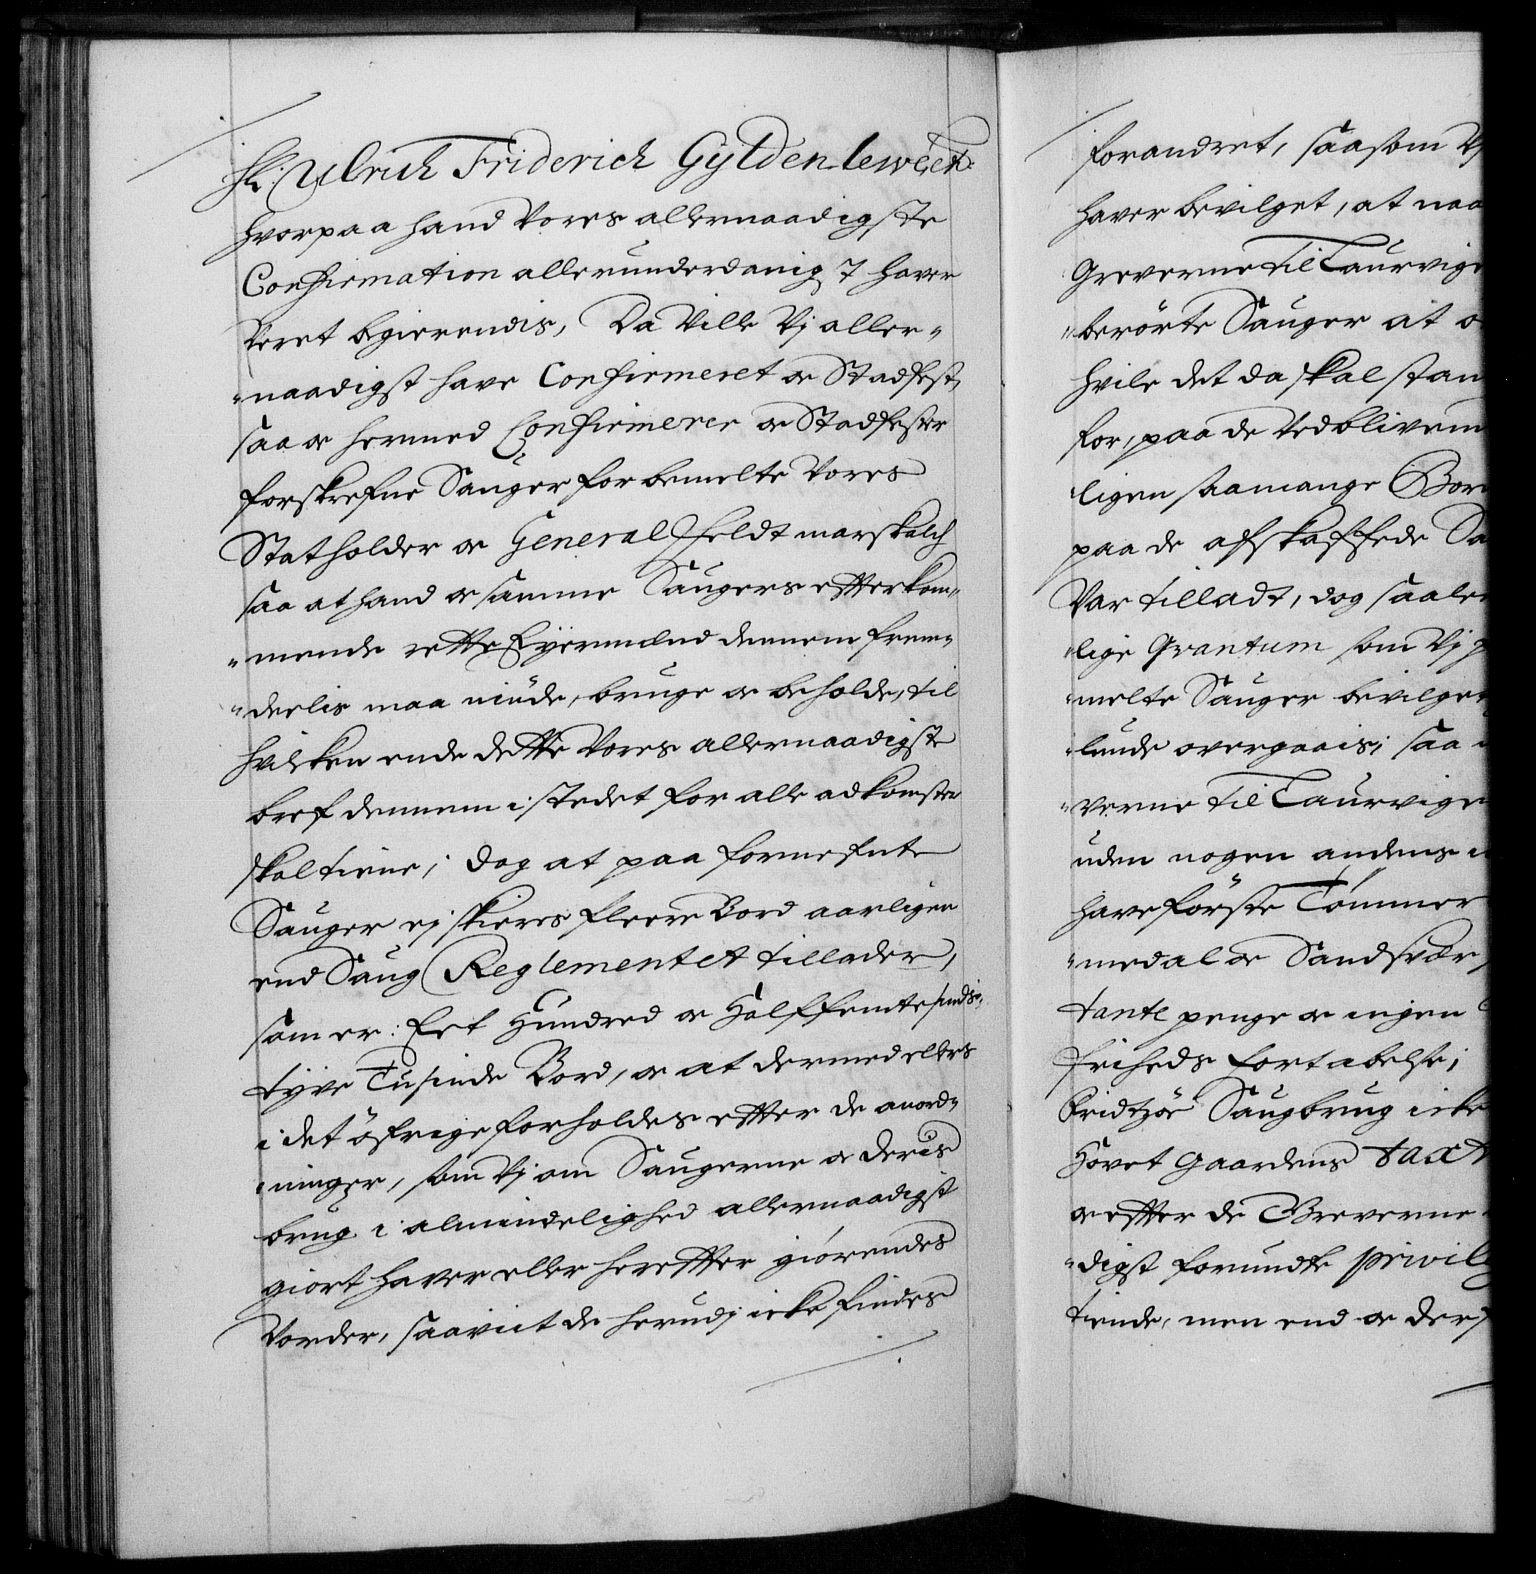 Hr: Ulrich Friderich Gyldenlewes
hvorpaa hand Vores allernaadigste
Confirmation allerunderdanigst haver
Veret begierendis, Da Ville Vj aller-
"naadigst have Confirmeret oc Stadfest,
saa oc hermed Confirmerer oc Stadfester
forskrefne Sauger for bemelte Vores
Statholder oc General Feldtmarskalch
saa at hand oc samme Saugers efterkom-
"mende rette Ejermænd dennem frem-
"deelis maa niude, bruge oc beholde, til
hvilken ende dette Vores allernaadigste
bref dennem i stedet for alle adkomster
skal tiene; dog at paa fornefnte
Sauger ej skieres fleere Bord aarligen
end Saug Reglementet tillader,
som er: Eet Hundred oc Halffemtesinds-
tyve Tusinde Bord, oc at dermed elles
i det öfrige forholdes efter de anord-
"ninger, som Vj om Saugerne oc deris
brug i almindelighed allernaadigst
giort haver eller herefter giörendes
Vorder, saaviit de herudj icke findes
forandret, saasom Vj
haver bevilget, at naa
Greverne til Laurvige
"berörte Sauger at
hvile det da skal staa
for, paa de Vedblivem
ligen saamange Bor
paa de afskaffede Sa
Var tilladt, dog saale
"lige Qvantum som Vj
"melte Sauger bevilget
"lunde overgaais; saa
"verne til Laurvige
uden nogen andens
have förste Tömmer
"medal oc Sandsvær
tante penge oc ingen
friheds fortabelse;
Fridtzöe Saugbrug icke
Hovet Gaardens taxt
oc efter de Greverne
"digst forundte privile
tiende, men end oc der